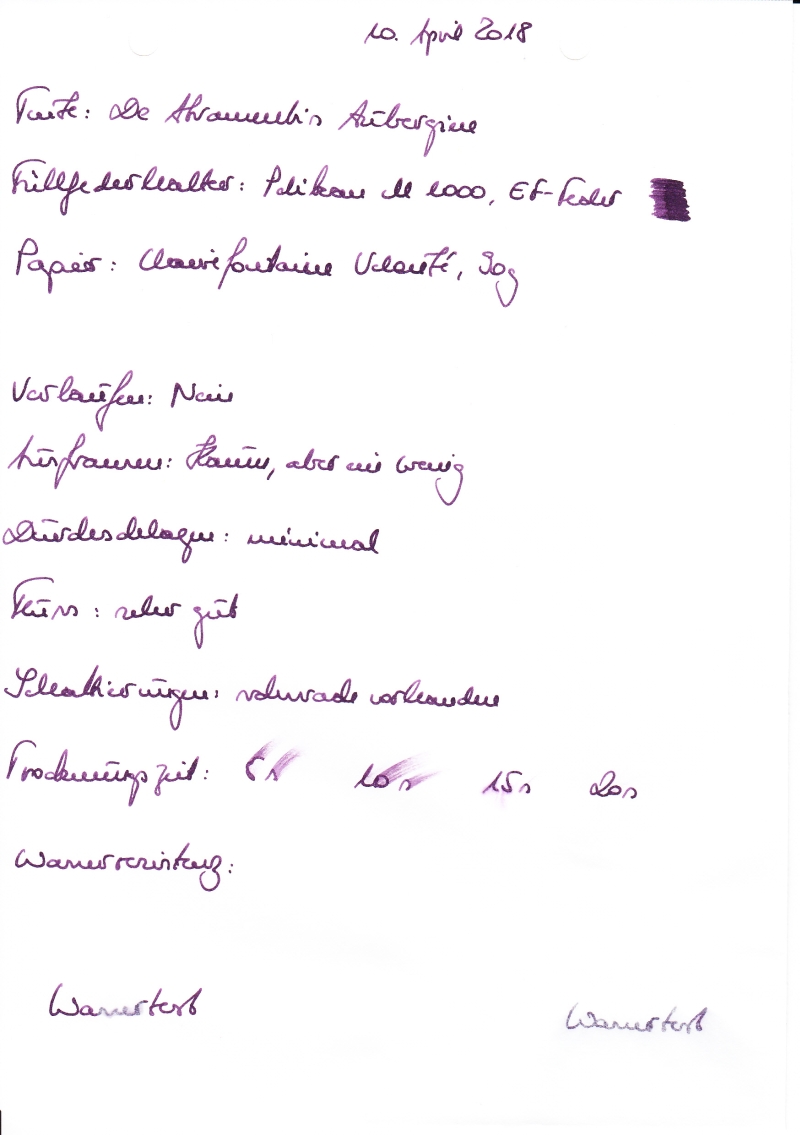 10. April 2018
Tinte: De Atramentis Aubergine
Füllfederhalter: Pelikan M 1000, EF-Feder
Papier: Clairefontaine Velouté, 90g
Verlaufen: Nein
Ausfransen: Kaum, aber ein wenig
Durchschlagen: minimal
Fluss: sehr gut
Schattierungen: schwach vorhanden
Trocknungszeit: 5s 10s 15s 20s
Wasserresistenz:
Wassertest Wassertest